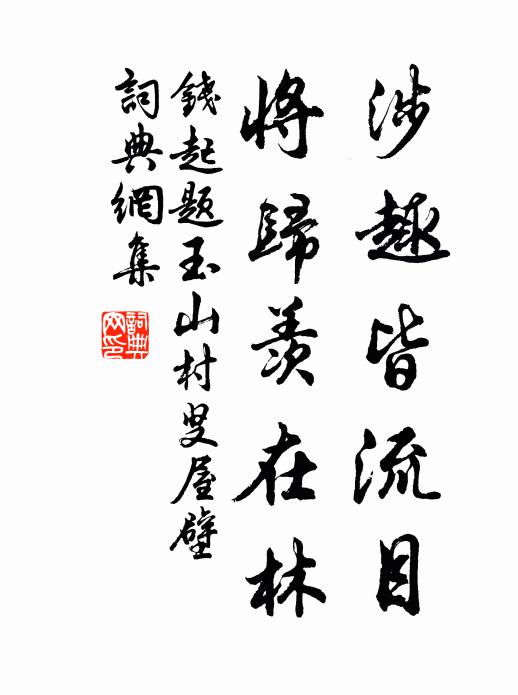 涉趣皆流目
將歸羨在林
錢起题玉山村叟屋壁
詞典網集
詞典网印